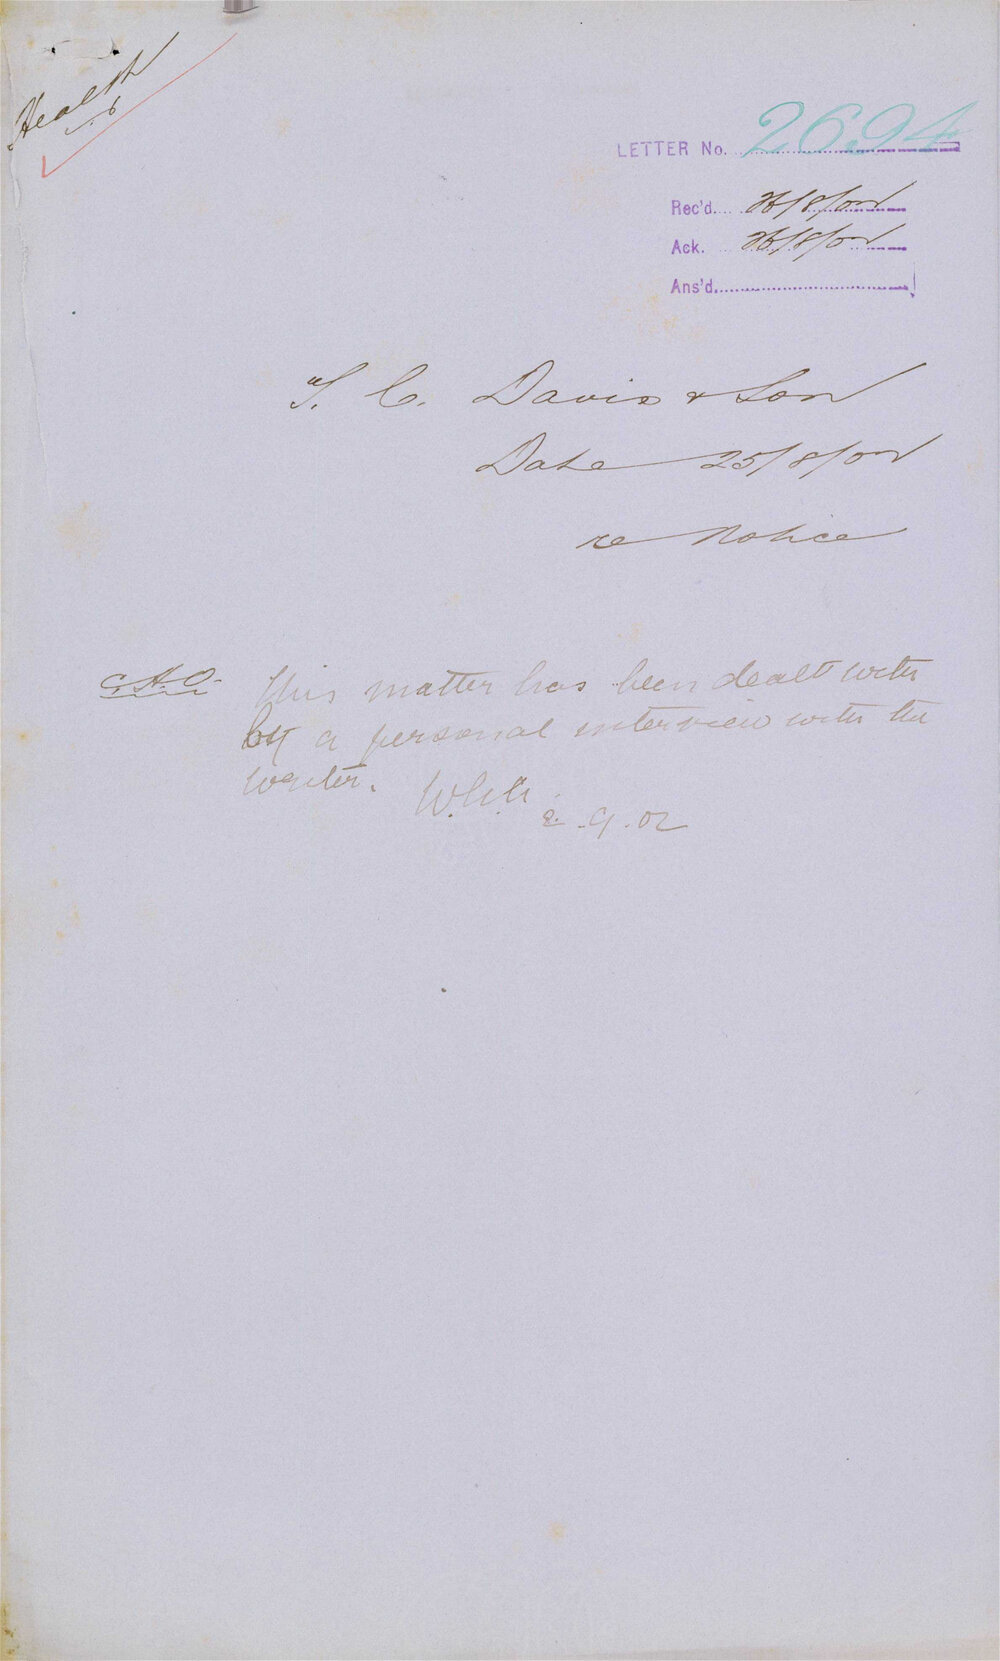 Health
LETTER No. 2694
Rec'd. 26/8/02
Ack. 26/8/02
Ans'd.
T. C. Davis & Son
Date 25/8/02
re Notice
C.H.O. This matter has been dealt with
by a personal interview with the
writer.
2.9.02